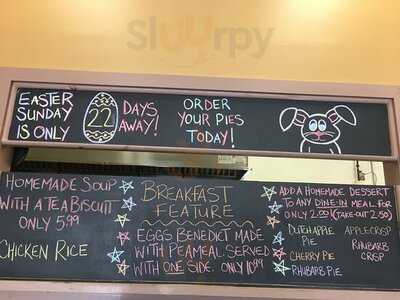 Sluurpy
EASTER
SUNDAY
IS ONLY
22
DAYS
AWAY!
ORDER
YOUR PIES
TODAY!
HOMEMADE SOUP
WITH A TEA BISCUIT
ONLY 5.99
CHICKEN RICE
BREAKFAST
FEATURE
EGGS BENEDICT MADE
WITH PEAMEAL SERVED
WITH ONE SIDE. ONLY 10.99
ADD A HOMEMADE DESSERT
TO ANY DINE-IN MEAL FOR
ONLY 2.99 (TAKE-OUT 2.50)
DUTCH APPLE
PIE
CHERRY PIE
RHUBARB PIE
APPLE CRISP
RHUBARB
CRISP